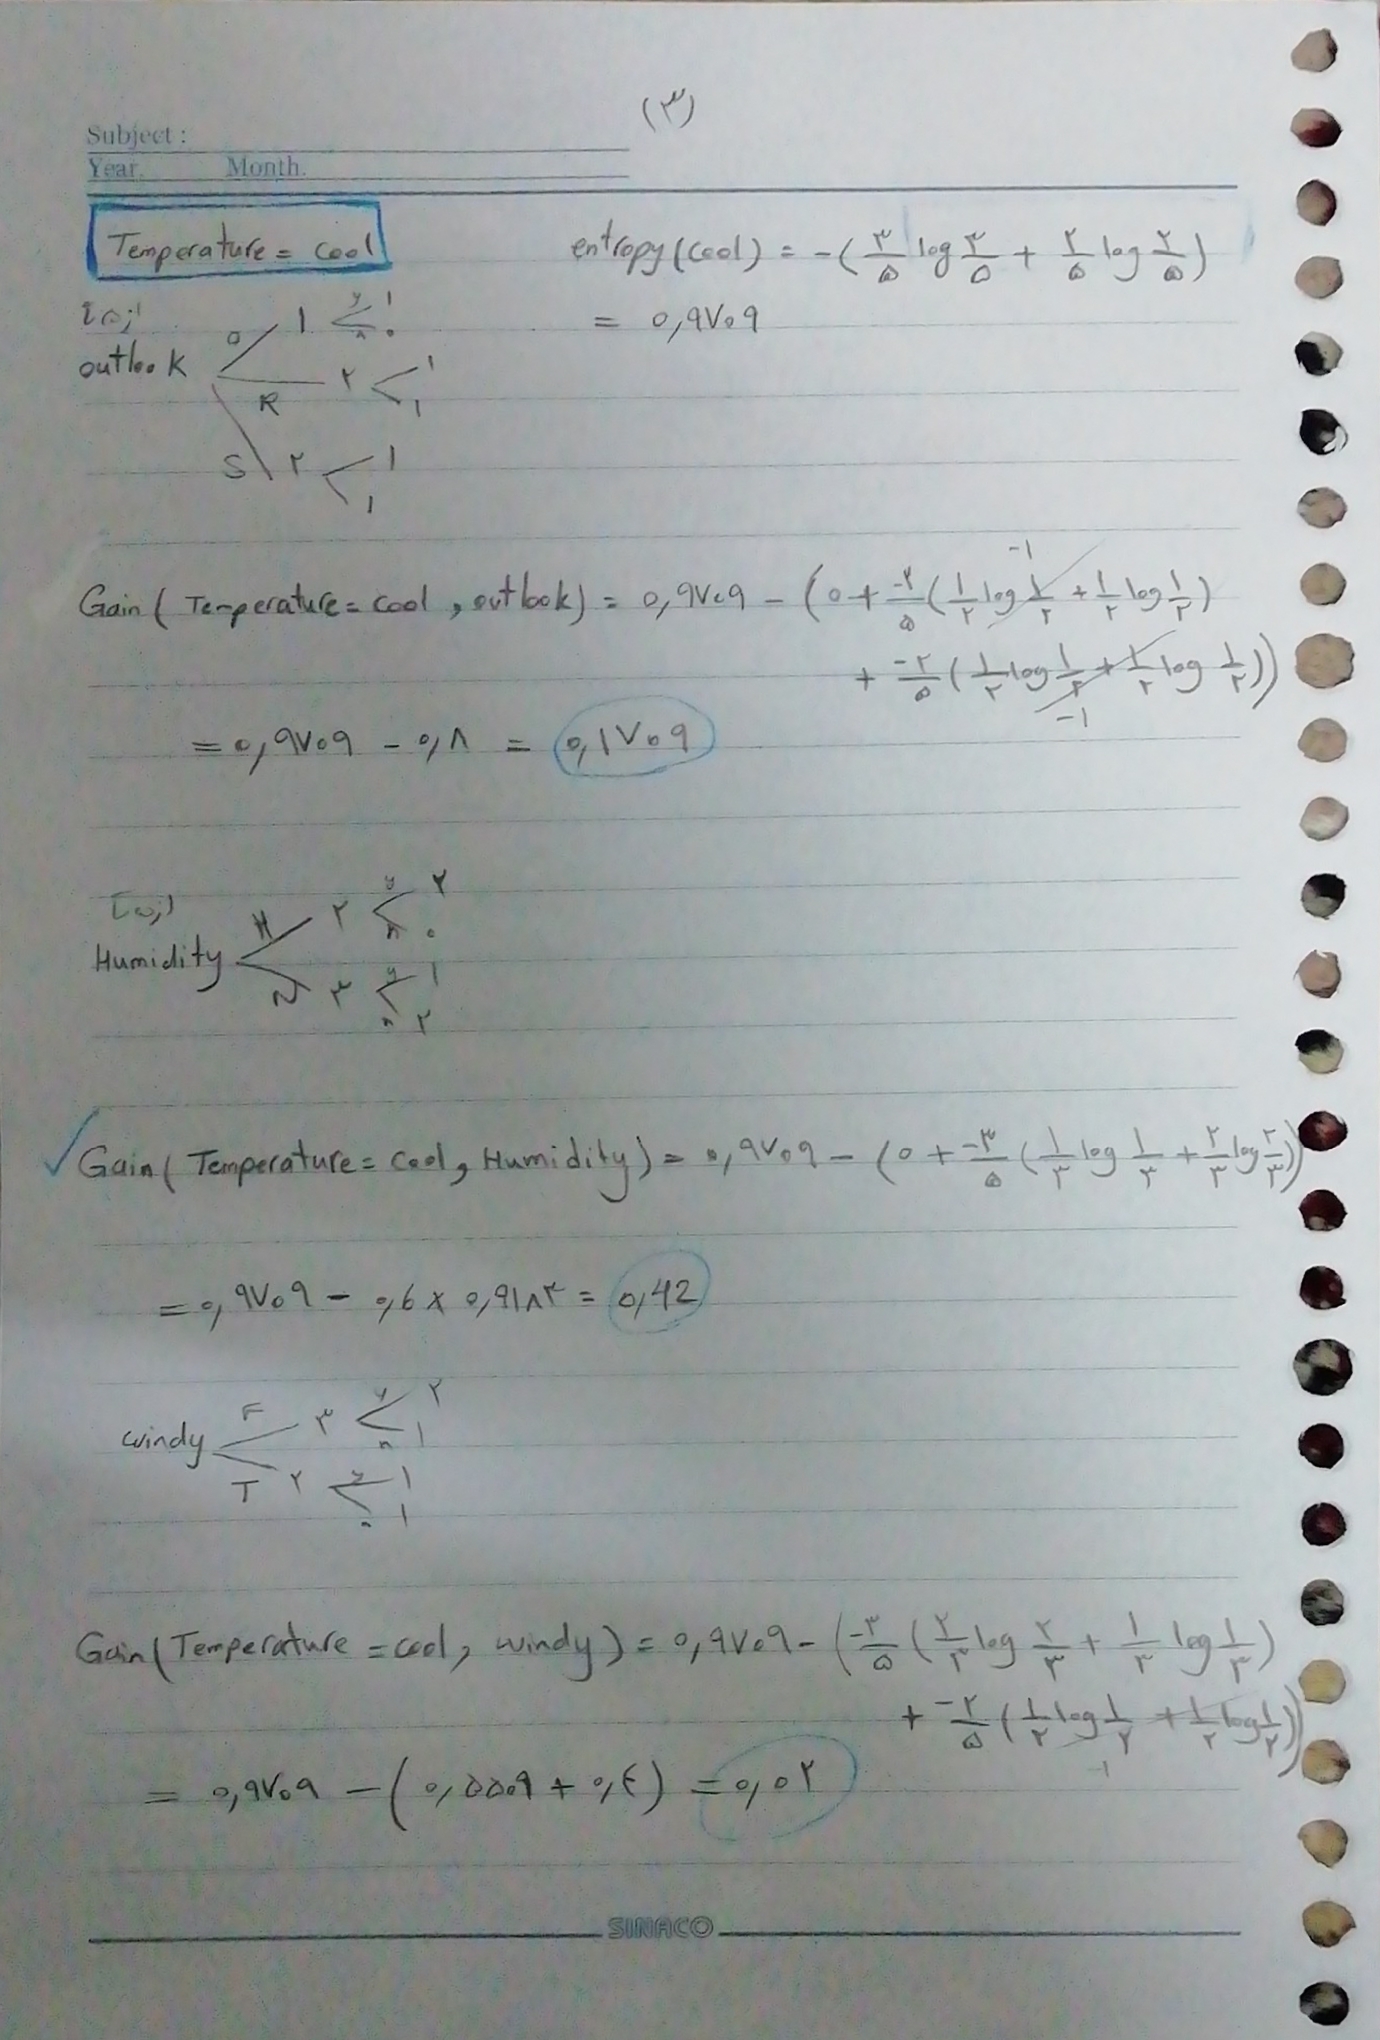 (۳)
Subject :
Year. Month.
Temperature = cool
entropy(cool) = -(۳/۵ log ۳/۵ + ۲/۵ log ۲/۵)
= 0,9۷۰9
outlook
O ۱ y ۱ n ۰
R ۲ ۱ ۱
S ۲ ۱ ۱
Gain( Temperature = cool , outlook) = 0,9۷۰9 - (0 + -۲/۵ (۱/۲ log ۱/۲ + ۱/۲ log ۱/۲) -1
+ -۲/۵ (۱/۲ log ۱/۲ + ۱/۲ log ۱/۲)) -1
= 0,9۷۰9 - ۰,۸ = 0,1۷۰9
Humidity
H ۲ y ۲ n ۰
N ۳ y ۱ n ۲
✓ Gain( Temperature = cool , Humidity) = ۰,9۷۰9 - (0 + -۳/۵ (۱/۳ log ۱/۳ + ۲/۳ log ۲/۳))
= ۰,9۷۰9 - ۰,6 × ۰,91۸۳ = 0,42
windy
F ۳ y ۲ n ۱
T ۲ y ۱ n ۱
Gain(Temperature = cool, windy) = 0,9۷۰9 - (-۳/۵ (۲/۳ log ۲/۳ + ۱/۳ log ۱/۳)
+ -۲/۵ (۱/۲ log ۱/۲ + ۱/۲ log ۱/۲)) -1
= 0,9۷۰9 - (۰,۵۵۰9 + ۰,۴) = ۰,۰۲
SINACO